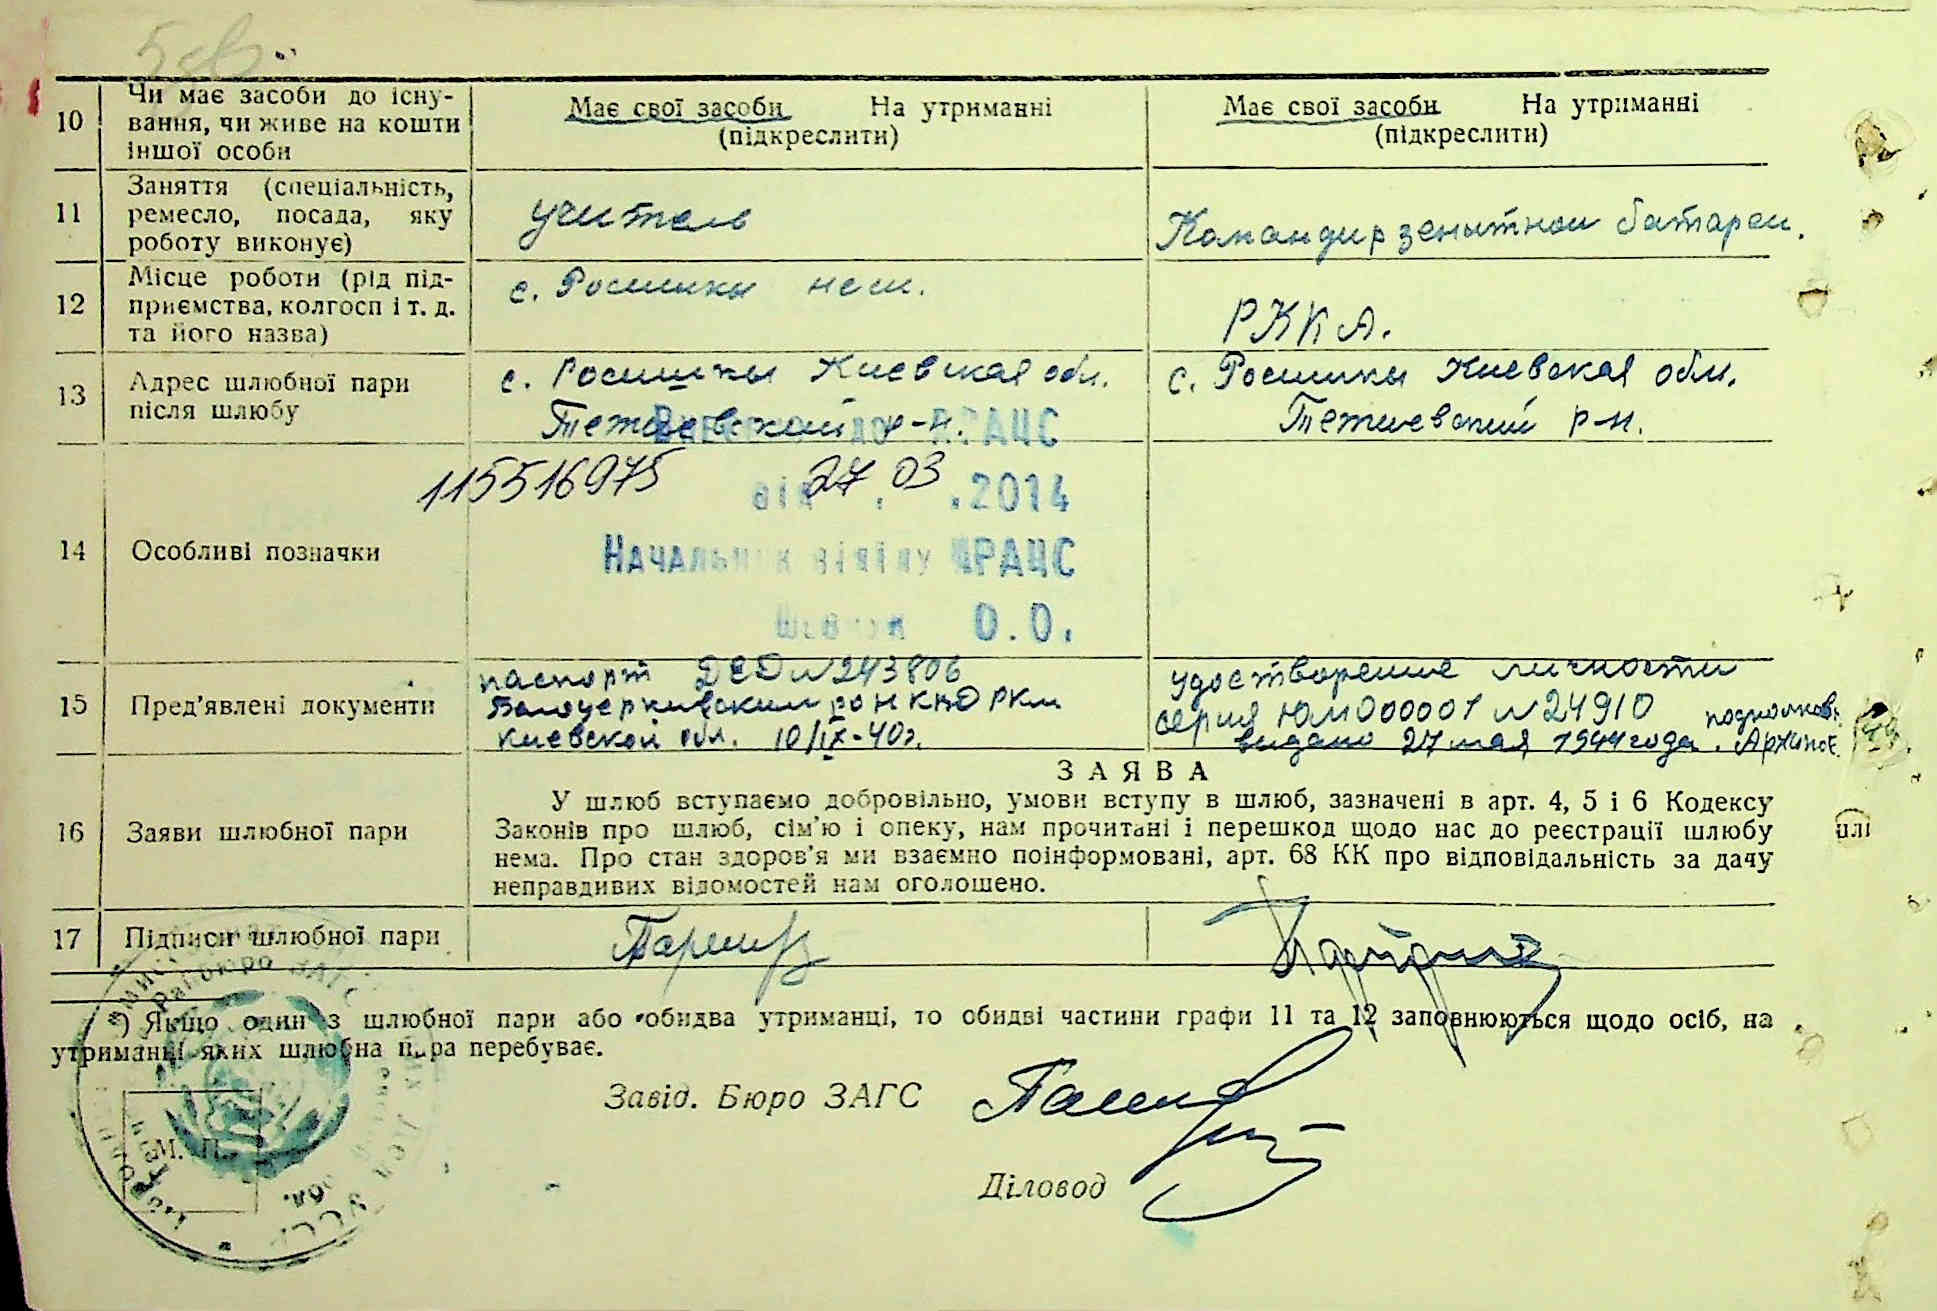 10
Чи має засоби до існу-
вання, чи живе на кошти
іншої особи
Має свої засоби На утриманні
(підкреслити)
Має свої засоби На утриманні
(підкреслити)
11
Заняття (спеціальність,
ремесло, посада, яку
роботу виконує)
учитель
Командир зенитной батареи.
12
Місце роботи (рід під-
приємства, колгосп і т. д.
та його назва)
с. Росишки
РККА.
13
Адрес шлюбної пари
після шлюбу
с. Росишки Киевская обл.
р-н.
с. Росишки Киевская обл.
Тетиевский р-н.
14
Особливі позначки
115516975
до ДРАЦС
від 27.03.2014
Начальник відділу ДРАЦС
О.О.
15
Пред'явлені документи
паспорт № 243806
Белоцерковским РО НКВД РКМ
Киевской обл. 10/IX-40г.
удостворение личности
серия ЮМ000001 № 24910
видано 27 мая 1944 года.
16
Заяви шлюбної пари
ЗАЯВА
У шлюб вступаємо добровільно, умови вступу в шлюб, зазначені в арт. 4, 5 і 6 Кодексу
Законів про шлюб, сім'ю і опеку, нам прочитані і перешкод щодо нас до реєстрації шлюбу
нема. Про стан здоров'я ми взаємно поінформовані, арт. 68 КК про відповідальність за дачу
неправдивих відомостей нам оголошено.
17
Підписи шлюбної пари
) Якщо один з шлюбної пари або обидва утриманці, то обидві частини графи 11 та 12 заповнюються щодо осіб, на
утриманні яких шлюбна пара перебуває.
Завід. Бюро ЗАГС
Діловод
М. П.
Райбюро ЗАГС
УССР